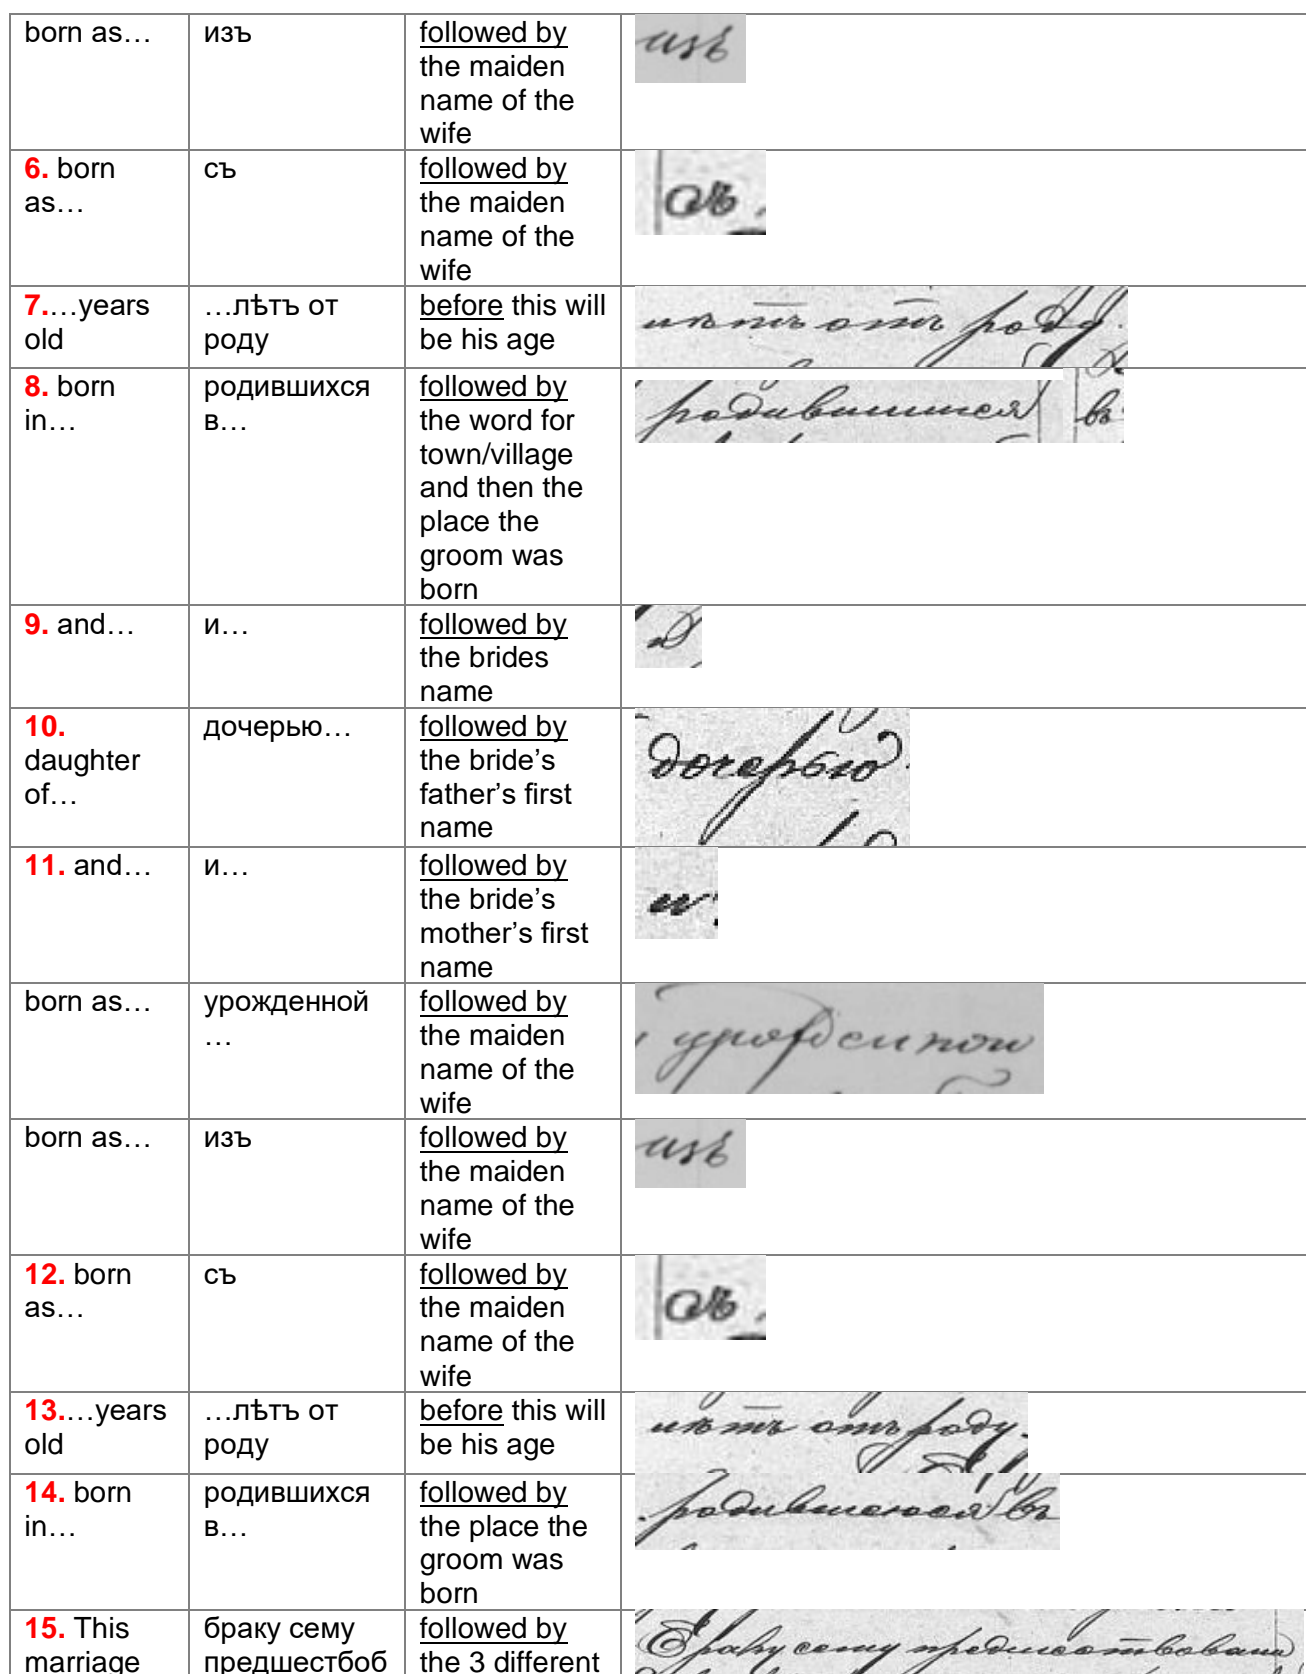 born as… изъ followed by
the maiden
name of the
wife
изъ
6. born
as…
съ
followed by
the maiden
name of the
wife
съ
7.…years
old
…лѣтъ от
роду
before this will
be his age
лѣтъ отъ роду
8. born
in…
родившихся
в…
followed by
the word for
town/village
and then the
place the
groom was
born
родившимся въ
9. and…
и…
followed by
the brides
name
и
10.
daughter
of…
дочерью…
followed by
the bride’s
father’s first
name
дочерью
11. and…
и…
followed by
the bride’s
mother’s first
name
и
born as…
урожденной
…
followed by
the maiden
name of the
wife
урожденной
born as…
изъ
followed by
the maiden
name of the
wife
изъ
12. born
as…
съ
followed by
the maiden
name of the
wife
съ
13.…years
old
…лѣтъ от
роду
before this will
be his age
лѣтъ отъ роду
14. born
in…
родившихся
в…
followed by
the place the
groom was
born
родившеюся въ
15. This
marriage
браку сему
предшестбоб
followed by
the 3 different
Браку сему предшествовали